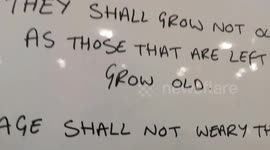 THEY SHALL GROW NOT OL
AS THOSE THAT ARE LEFT
GROW OLD
newsflare
AGE SHALL NOT WEARY TH